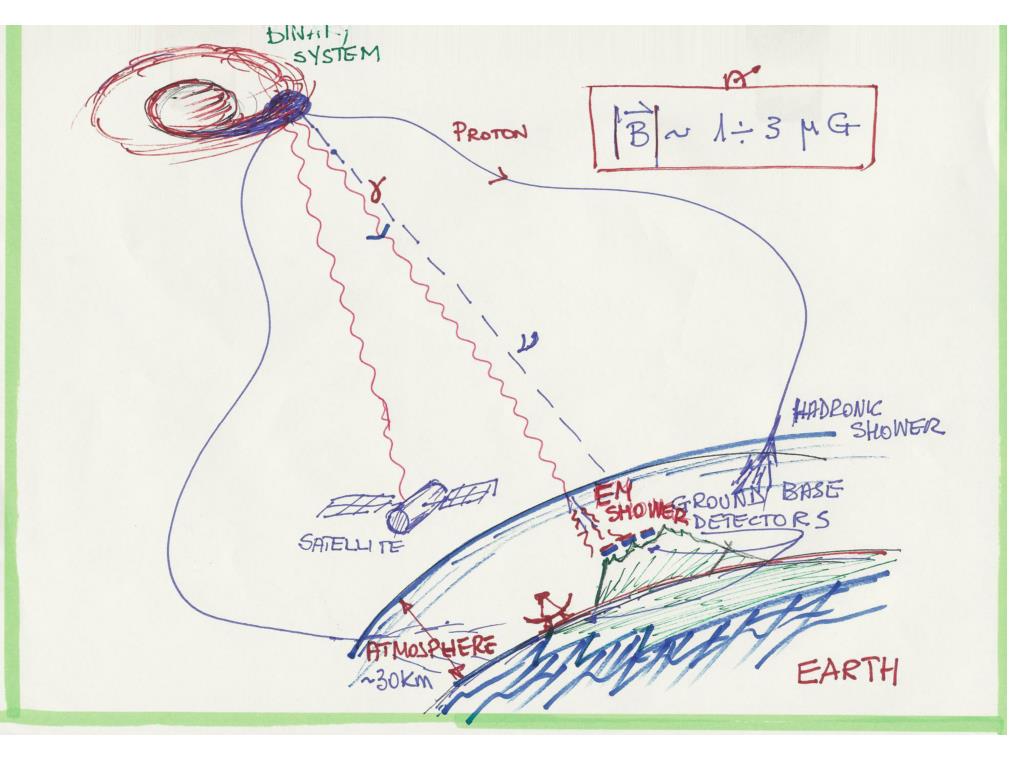 BINARY
SYSTEM
PROTON
|B| ~ 1 ÷ 3 μG
γ
ν
HADRONIC
SHOWER
EM
SHOWER
GROUND BASE
DETECTORS
SATELLITE
ATMOSPHERE
~30KM
EARTH